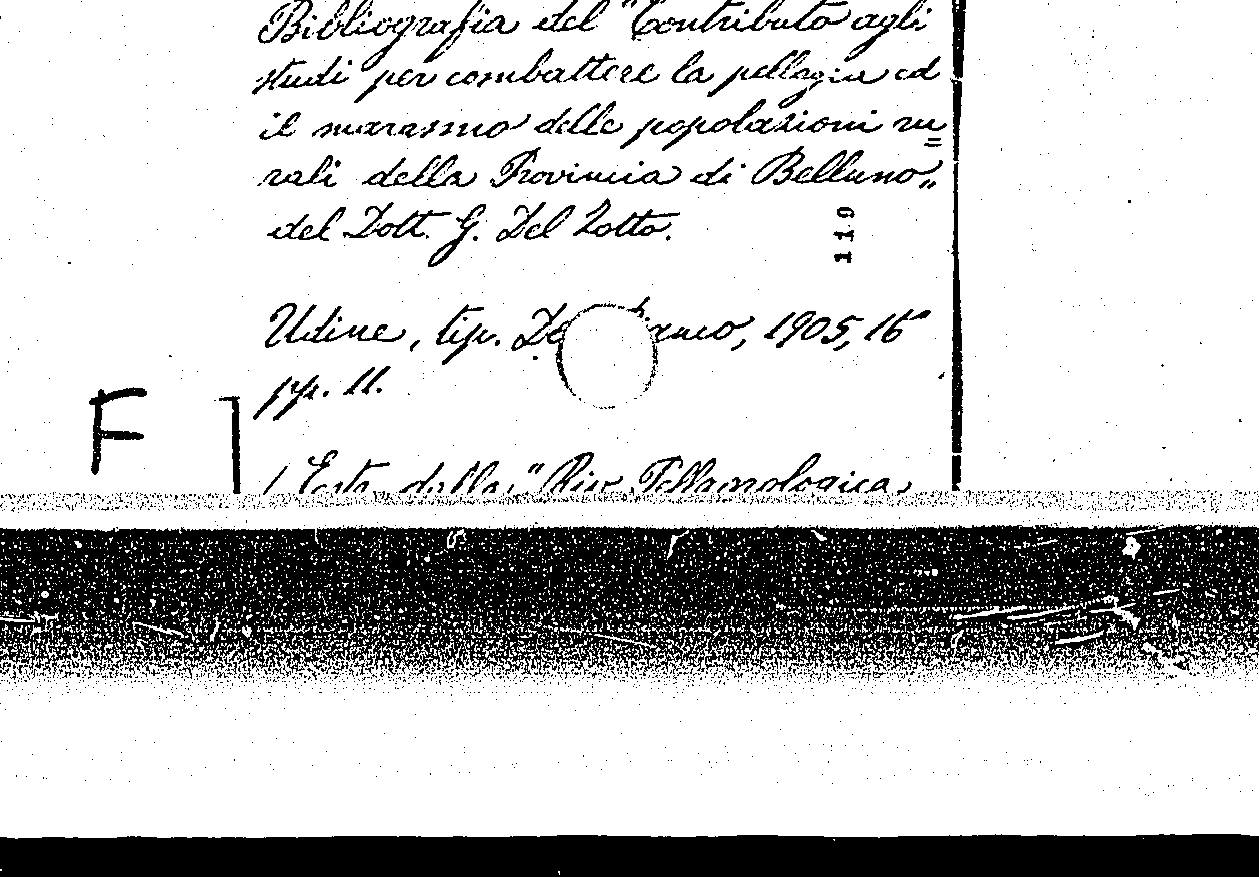 Bibliografia del "Contributo agli
studi per combattere la pellagra ed
il marasmo delle popolazioni ru=
rali della Provincia di Belluno„
del Dott. G. Del Zotto.
119
Udine, tip. Del Bianco, 1905, 16°
pp. 11.
F
( Estr. dalla "Riv. Pellagrologica